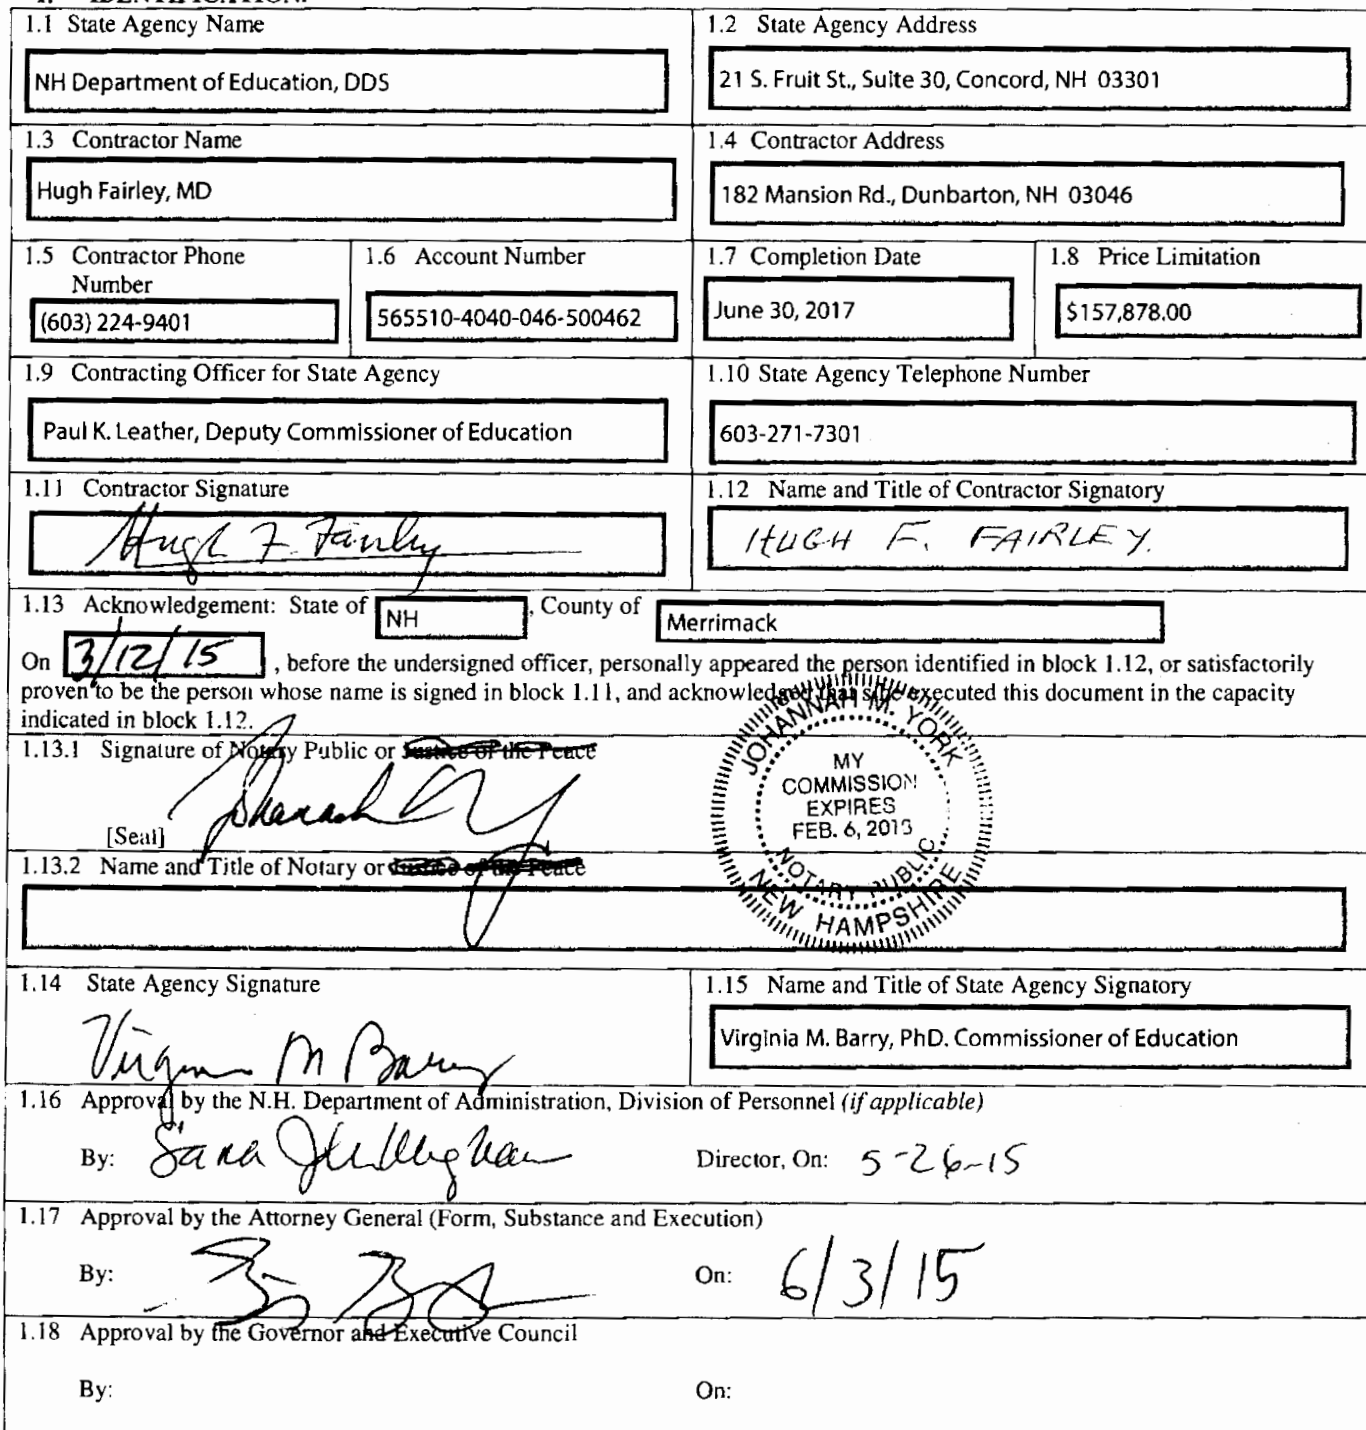 1.1 State Agency Name
NH Department of Education, DDS
1.2 State Agency Address
21 S. Fruit St., Suite 30, Concord, NH 03301
1.3 Contractor Name
Hugh Fairley, MD
1.4 Contractor Address
182 Mansion Rd., Dunbarton, NH 03046
1.5 Contractor Phone
Number
(603) 224-9401
1.6 Account Number
565510-4040-046-500462
1.7 Completion Date
June 30, 2017
1.8 Price Limitation
$157,878.00
1.9 Contracting Officer for State Agency
Paul K. Leather, Deputy Commissioner of Education
1.10 State Agency Telephone Number
603-271-7301
1.11 Contractor Signature
Hugh F. Fairley
1.12 Name and Title of Contractor Signatory
HUGH F. FAIRLEY.
1.13 Acknowledgement: State of NH, County of Merrimack
On 3/12/15, before the undersigned officer, personally appeared the person identified in block 1.12, or satisfactorily
proven to be the person whose name is signed in block 1.11, and acknowledged that s/he executed this document in the capacity
indicated in block 1.12.
1.13.1 Signature of Notary Public or Justice of the Peace
[Seal]
JOHANNAH M. YORK
MY
COMMISSION
EXPIRES
FEB. 6, 201
NOTARY PUBLIC
NEW HAMPSHIRE
1.13.2 Name and Title of Notary or Justice of the Peace
1.14 State Agency Signature
Virginia M Barry
1.15 Name and Title of State Agency Signatory
Virginia M. Barry, PhD. Commissioner of Education
1.16 Approval by the N.H. Department of Administration, Division of Personnel (if applicable)
By: Sara
Director, On: 5-26-15
1.17 Approval by the Attorney General (Form, Substance and Execution)
By:
On: 6/3/15
1.18 Approval by the Governor and Executive Council
By:
On: